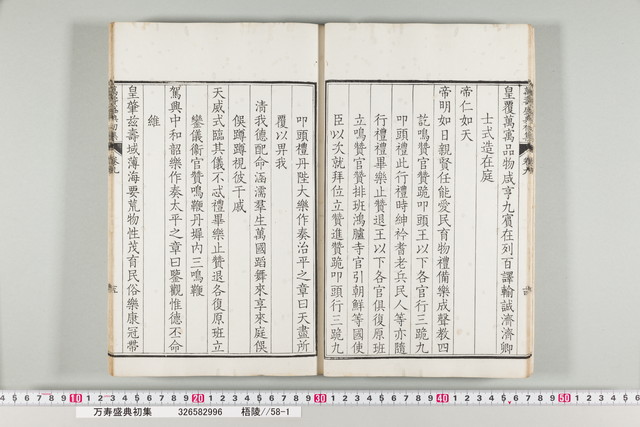 皇覆萬㝢品物咸亨九賓在列百譯輸誠濟濟卿
士式造在庭
帝仁如天
帝明如日親賢任能愛民育物禮備樂成聲教四
訖鳴贊官贊跪叩頭王以下各官行三跪九
叩頭禮此行禮時紳衿耆老兵民人等亦隨
行禮禮畢樂止贊退王以下各官俱復原班
立鳴贊官贊排班鴻臚寺官引朝鮮等國使
臣以次就拜位立贊進贊跪叩頭行三跪九
叩頭禮丹陛大樂作奏治平之章曰天盡所
覆以畀我
清我德配命涵濡羣生萬國蹈舞來享來庭俁
俁蹲蹲視彼干戚
天威式臨其儀不忒禮畢樂止贊退各復原班立
鑾儀衛官贊鳴鞭丹墀内三鳴鞭
駕興中和韶樂作奏太平之章曰鑒觀惟德丕命
維
皇肇茲壽域薄海要荒物性茂育民俗樂康冠帶
万寿盛典初集 326582996 梧陵//58-1
10 20 30 40 50